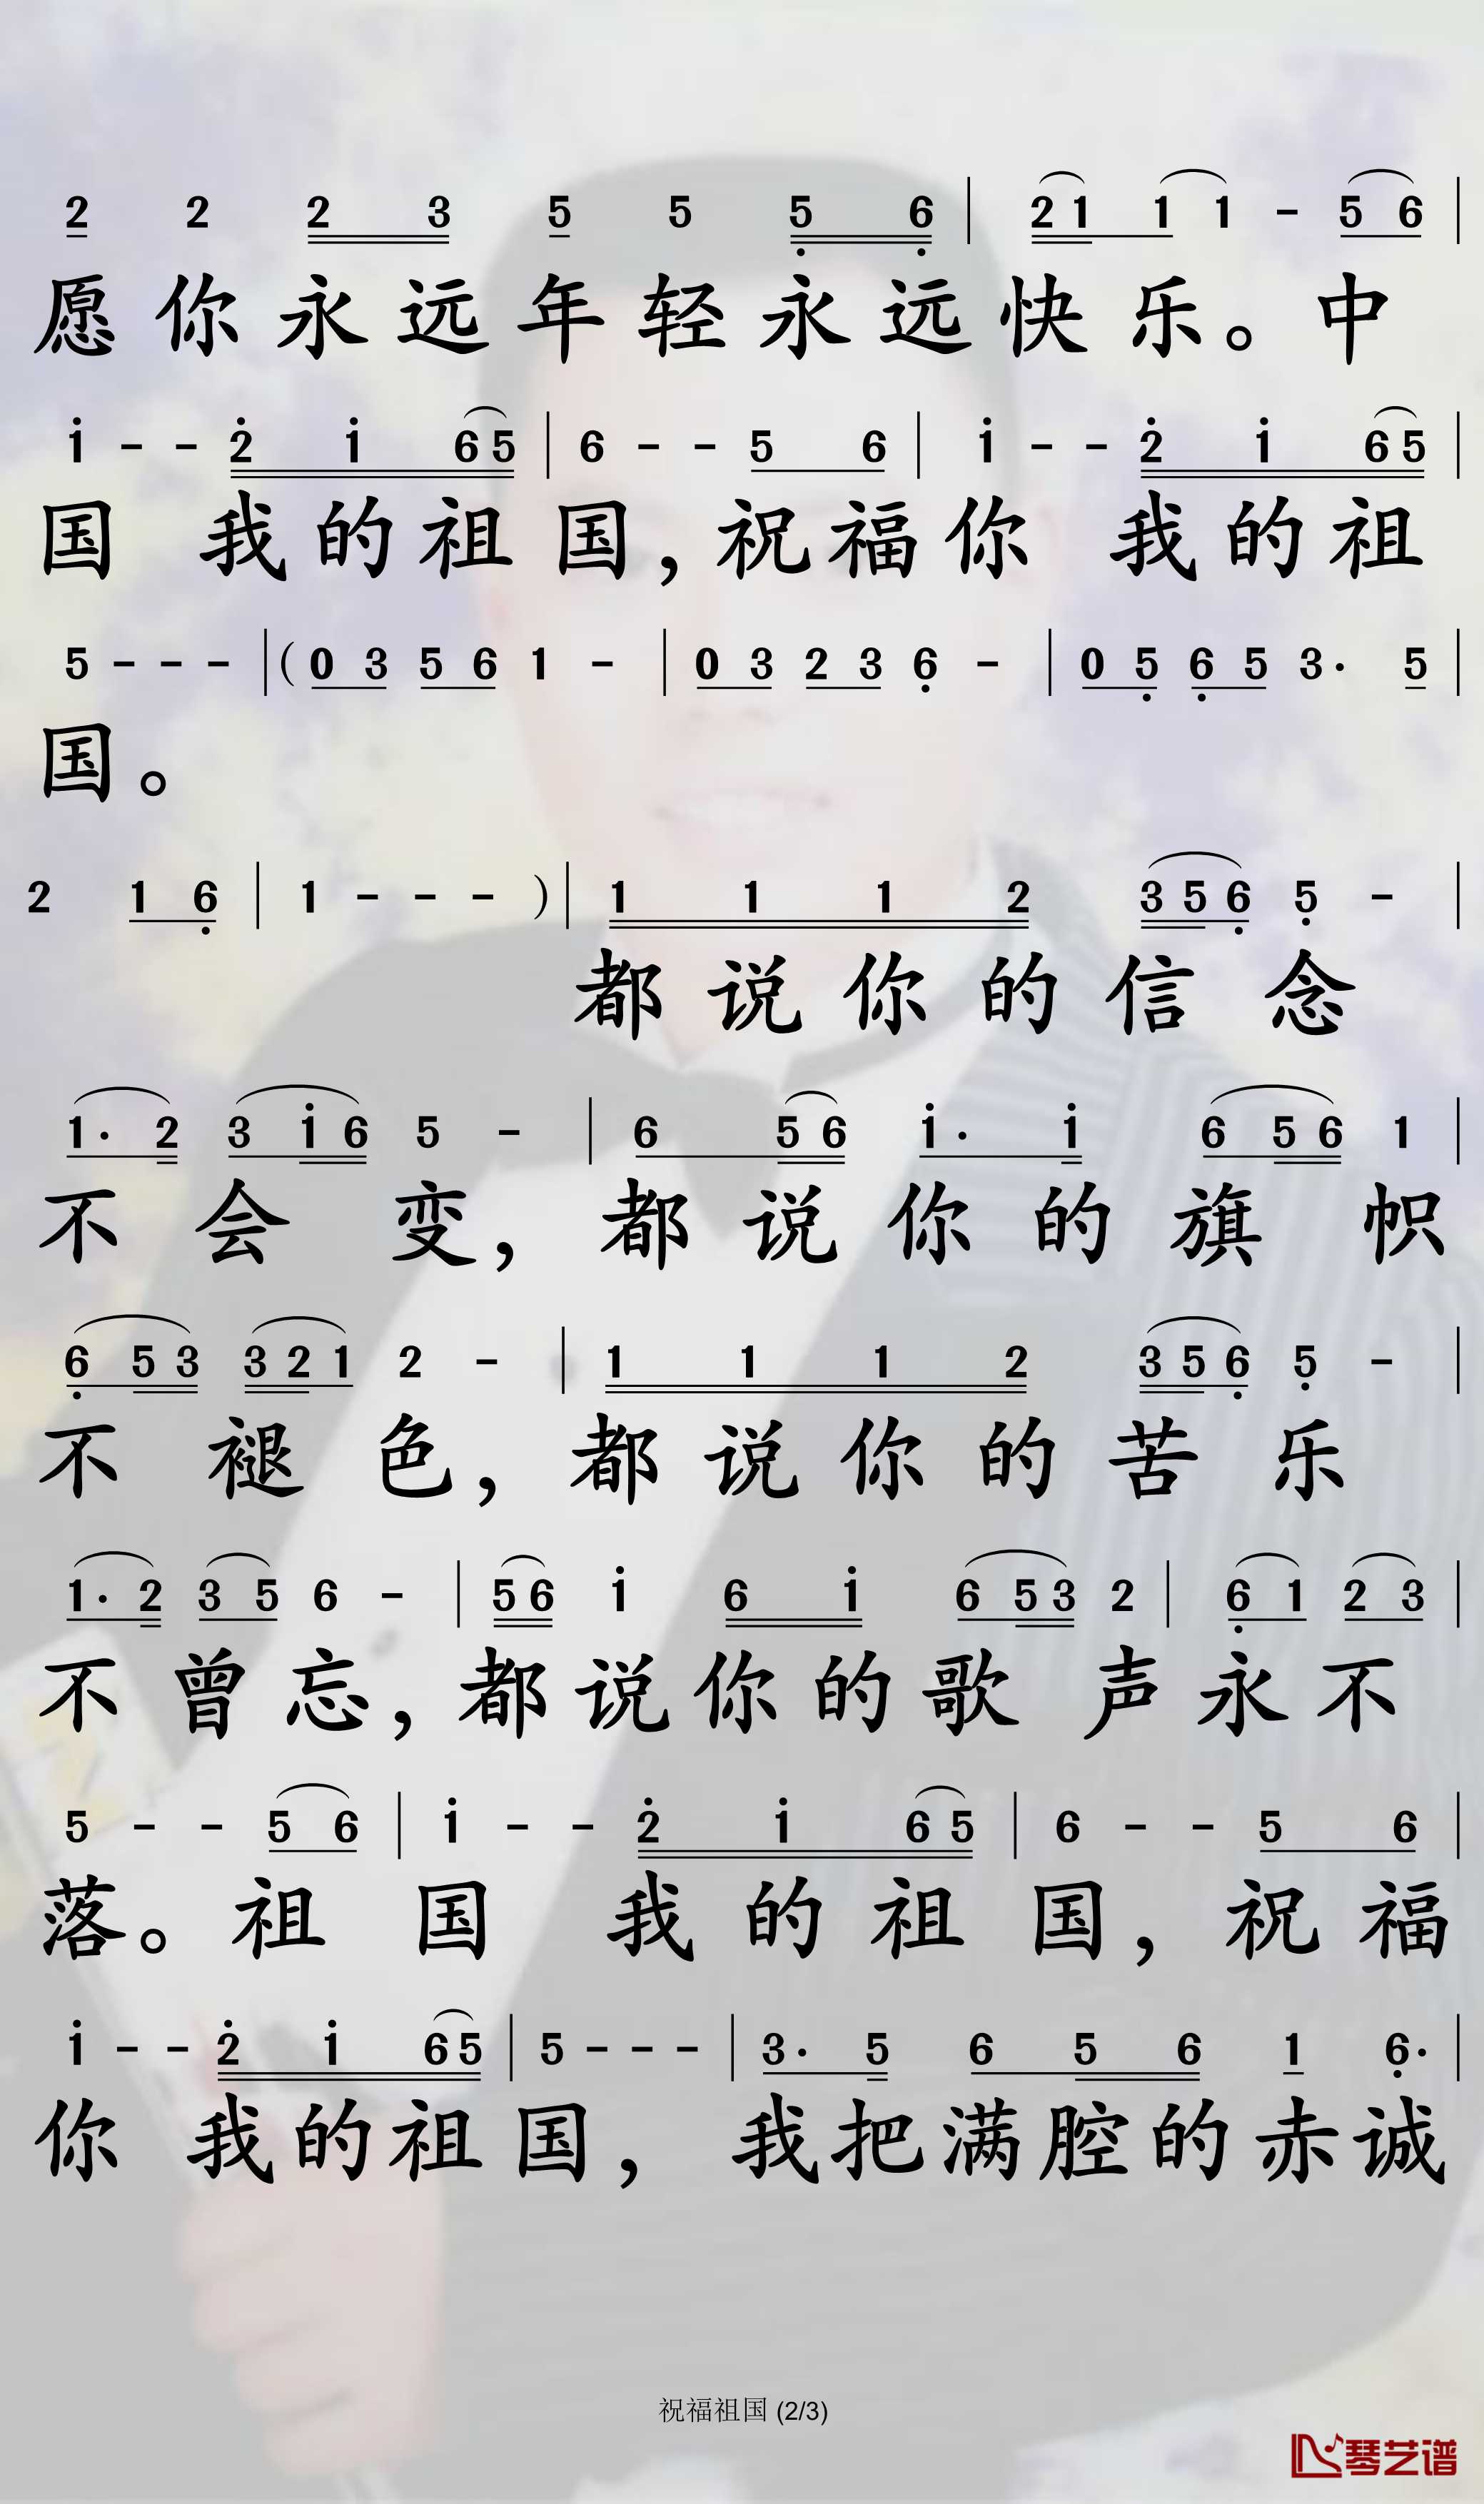 2 2 2 3 5 5 5 6 | 2 1 1 1 - 5 6 |
愿你永远年轻永远快乐。中
1 - - 2 1 6 5 | 6 - - 5 6 | 1 - - 2 1 6 5 |
国 我的祖国,祝福你 我的祖
5 - - - | ( 0 3 5 6 1 - | 0 3 2 3 6 - | 0 5 6 5 3 · 5 |
国。
2 1 6 | 1 - - - ) | 1 1 1 2 3 5 6 5 - |
都说你的信念
1 · 2 3 1 6 5 - | 6 5 6 1 · 1 6 5 6 1 |
不会变,都说你的旗帜
6 5 3 3 2 1 2 - | 1 1 1 2 3 5 6 5 - |
不褪色,都说你的苦乐
1 · 2 3 5 6 - | 5 6 1 6 1 6 5 3 2 | 6 1 2 3 |
不曾忘,都说你的歌声永不
5 - - 5 6 | 1 - - 2 1 6 5 | 6 - - 5 6 |
落。祖国 我的祖国,祝福
1 - - 2 1 6 5 | 5 - - - | 3 · 5 6 5 6 1 6 · |
你 我的祖国,我把满腔的赤诚
祝福祖国 (2/3)
琴艺谱